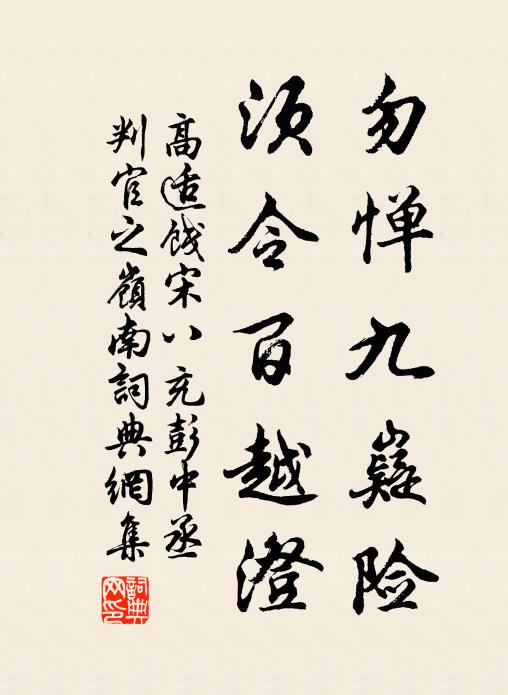 勿惮九嶷险
须令百越澄
高适饯宋八充彭中丞
判官之嶺南詞典網集